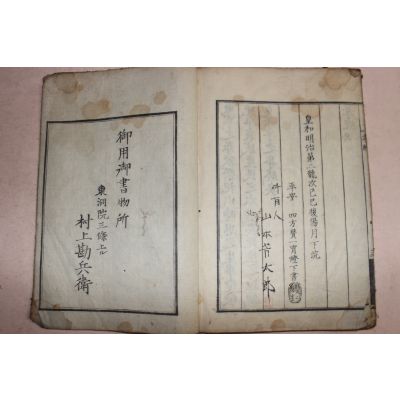 皇和明治第二龍次己巳復陽月下浣
平安 四方賛一實燈下書
作者人 山本常太郎
御用御書物所
東洞院三條上
村上勘兵衛